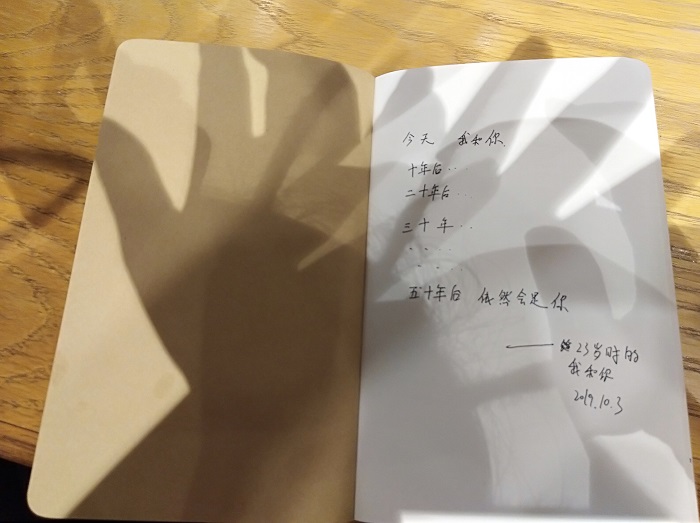 今天 我和你.
十年后...
二十年后...
三十年..
. . . .
. . . .
五十年后 依然会是你
—— 23岁时的
我和你
2019.10.3